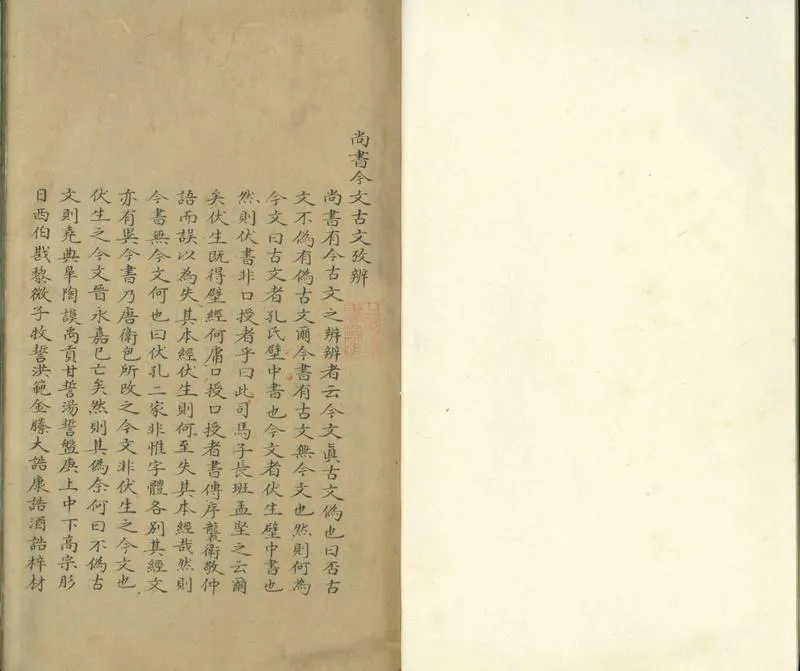 尚書今文古文攷辨
尚書有今古文之辨辨者云今文眞古文僞也曰否古
文不僞有僞古文爾今書有古文無今文也然則何為
今文曰古文者孔氏壁中書也今文者伏生壁中書也
然則伏書非口授者乎曰此司馬子長班孟堅之云爾
矣伏生既得壁經何庸口授口授者書傳序襲衛敬仲
語而誤以為失其本經伏生則何至失其本經哉然則
今書無今文何也曰伏孔二家非惟字體各别其經文
亦有異今書乃唐衛包所改之今文非伏生之今文也
伏生之今文晉永嘉已亡矣然則其僞奈何曰不僞古
文則堯典臯陶謨禹貢甘誓湯誓盤庚上中下高宗肜
日西伯戡黎微子牧誓洪範金縢大誥康誥酒誥梓材